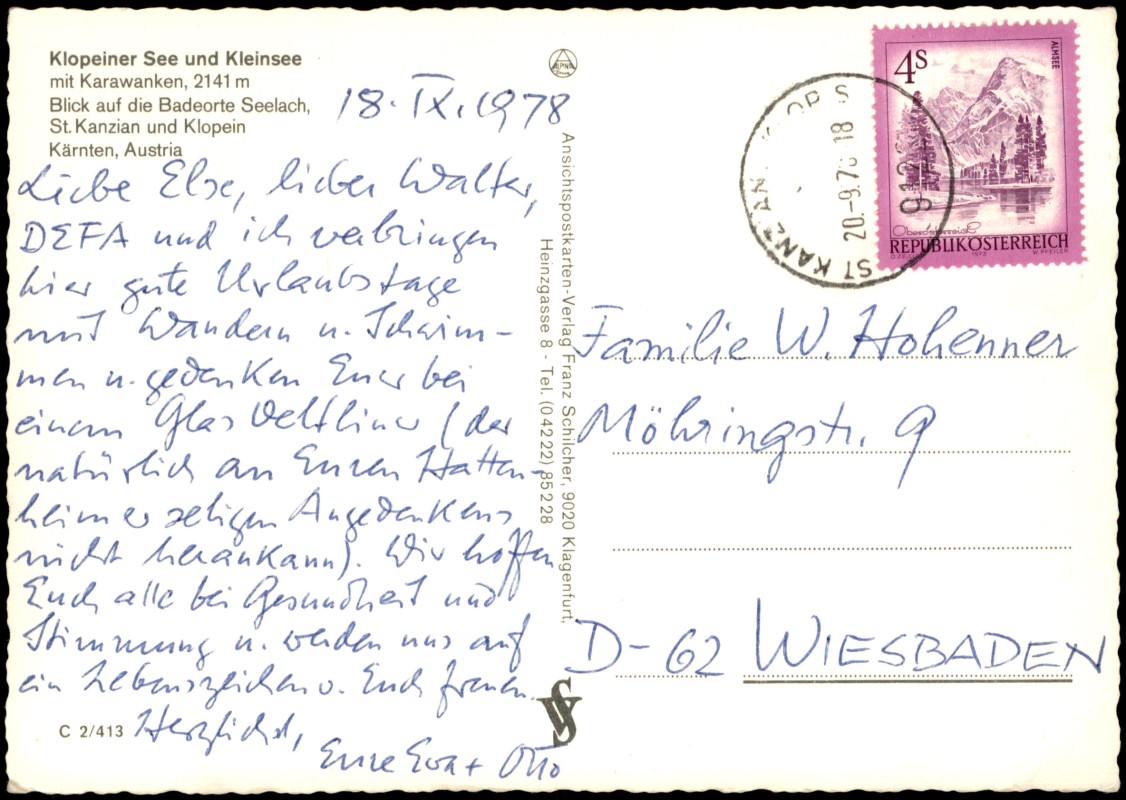 Klopeiner See und Kleinsee
mit Karawanken, 2141 m
Blick auf die Badeorte Seelach,
St. Kanzian und Klopein
Kärnten, Austria
18. IX. 1978
Liebe Else, lieber Walter,
DEFA und ich verbringen
hier gute Urlaubstage
mit Wandern u. Schwim-
men u. gedenken Euer bei
einem Glas Veltliner (der
natürlich an Euren Hatten-
heimer seligen Angedenkens
nicht herankann). Wir hoffen
Euch alle bei Gesundheit und
Stimmung u. werden uns auf
ein Lebenszeichen v. Euch freuen.
Herzlichst,
Eure Eva + Otto
C 2/413
ALPINA
Ansichtspostkarten-Verlag Franz Schilcher, 9020 Klagenfurt,
Heinzgasse 8 - Tel. (0 42 22) 85 2 28
4S
ALMSEE
Oberösterreich
REPUBLIK ÖSTERREICH
1973
W. PFEILER
ST KANZIAN KLOP S
20.-9.78 18
Familie W. Hohenner
Möhringstr. 9
D-62 WIESBADEN